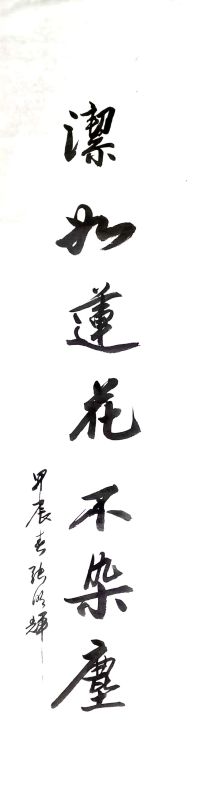 潔如蓮花不染塵
甲辰春張明輝